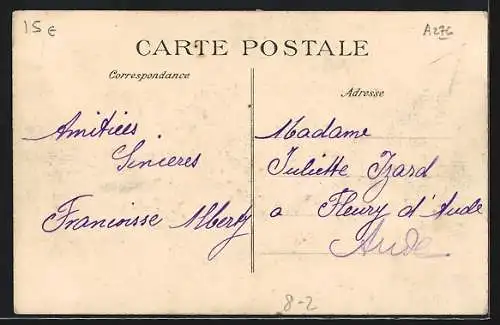 15€
A276
CARTE POSTALE
Correspondance
Adresse
Amitiées
Sinieres
Francoisse Albery
Madame
Juliette Izard
a Fleury d'Aude
Aude
8-2